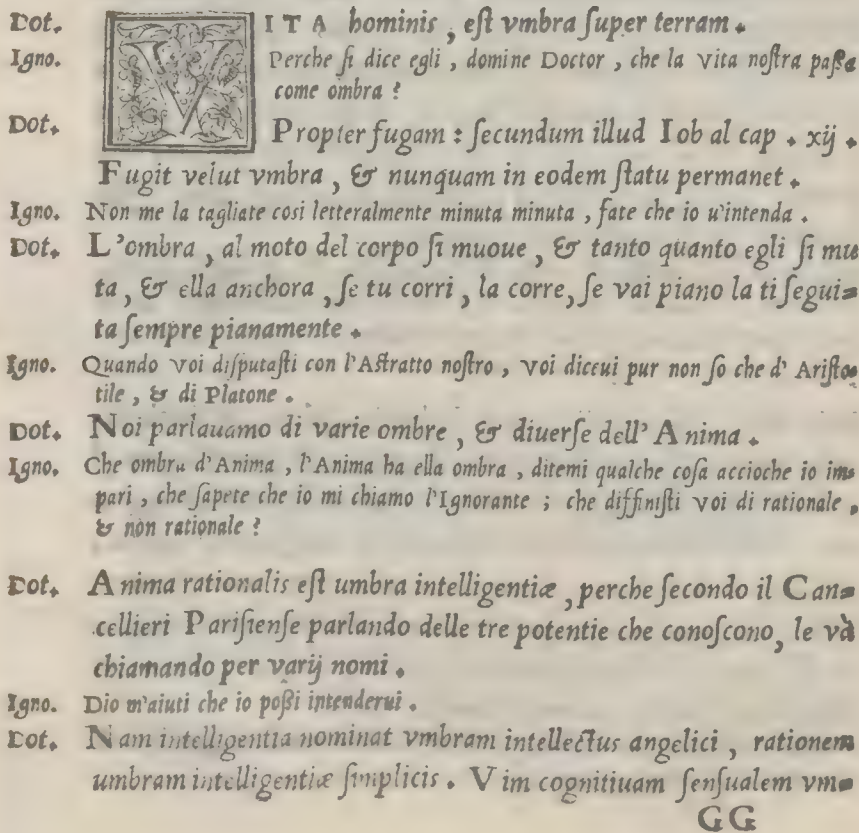 Dot. VITA hominis, eſt vmbra ſuper terram.
Igno. Perche ſi dice egli, domine Doctor, che la vita noſtra paſſa
come ombra?
Dot. Propter fugam: ſecundum illud Iob al cap. xij.
Fugit velut vmbra, & nunquam in eodem ſtatu permanet.
Igno. Non me la tagliate coſi letteralmente minuta minuta, fate che io u'intenda.
Dot. L'ombra, al moto del corpo ſi muoue, & tanto quanto egli ſi mu
ta, & ella anchora, ſe tu corri, la corre, ſe vai piano la ti ſegui=
ta ſempre pianamente.
Igno. Quando voi diſputaſti con l'Aſtratto noſtro, voi diceui pur non ſo che d' Ariſto=
tile, & di Platone.
Dot. Noi parlauamo di varie ombre, & diuerſe dell' Anima.
Igno. Che ombra d'Anima, l'Anima ha ella ombra, ditemi qualche coſa accioche io im=
pari, che ſapete che io mi chiamo l'Ignorante; che diffiniſti voi di rationale,
& non rationale?
Dot. Anima rationalis eſt umbra intelligentiæ, perche ſecondo il Can=
cellieri Pariſienſe parlando delle tre potentie che conoſcono, le và
chiamando per varij nomi.
Igno. Dio m'aiuti che io poßi intenderui.
Dot. Nam intelligentia nominat vmbram intellectus angelici, rationem
umbram intelligentiæ ſimplicis. Vim cognitiuam ſenſualem vm=
GG